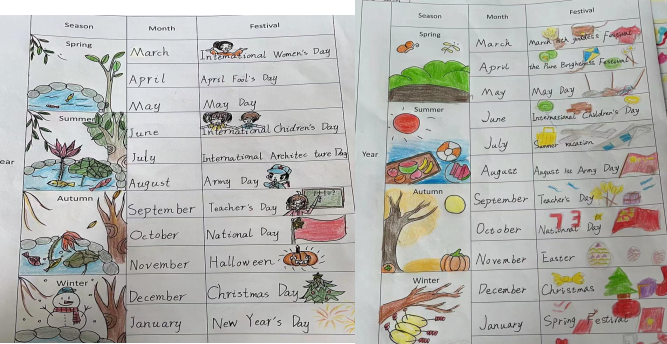 Season Month Festival
Spring
March International Women's Day
April April Fool's Day
May May Day
Summer
June International Chidren's Day
ear
July International Architec ture Day
August Army Day
Autumn
September Teacher's Day
October National Day
November Halloween
Winter
December Christmas Day
January New Year's Day
Season Month Festival
Spring
March March 8th Festival
April the Pure Brightness Festival
May May Day
Summer
June International Children's Day
Year
July Summer vacation
August August 1st Army Day
Autumn
September Teacher's Day
73
October National Day
November Easter
Winter
December Christmas
January Spring Festival